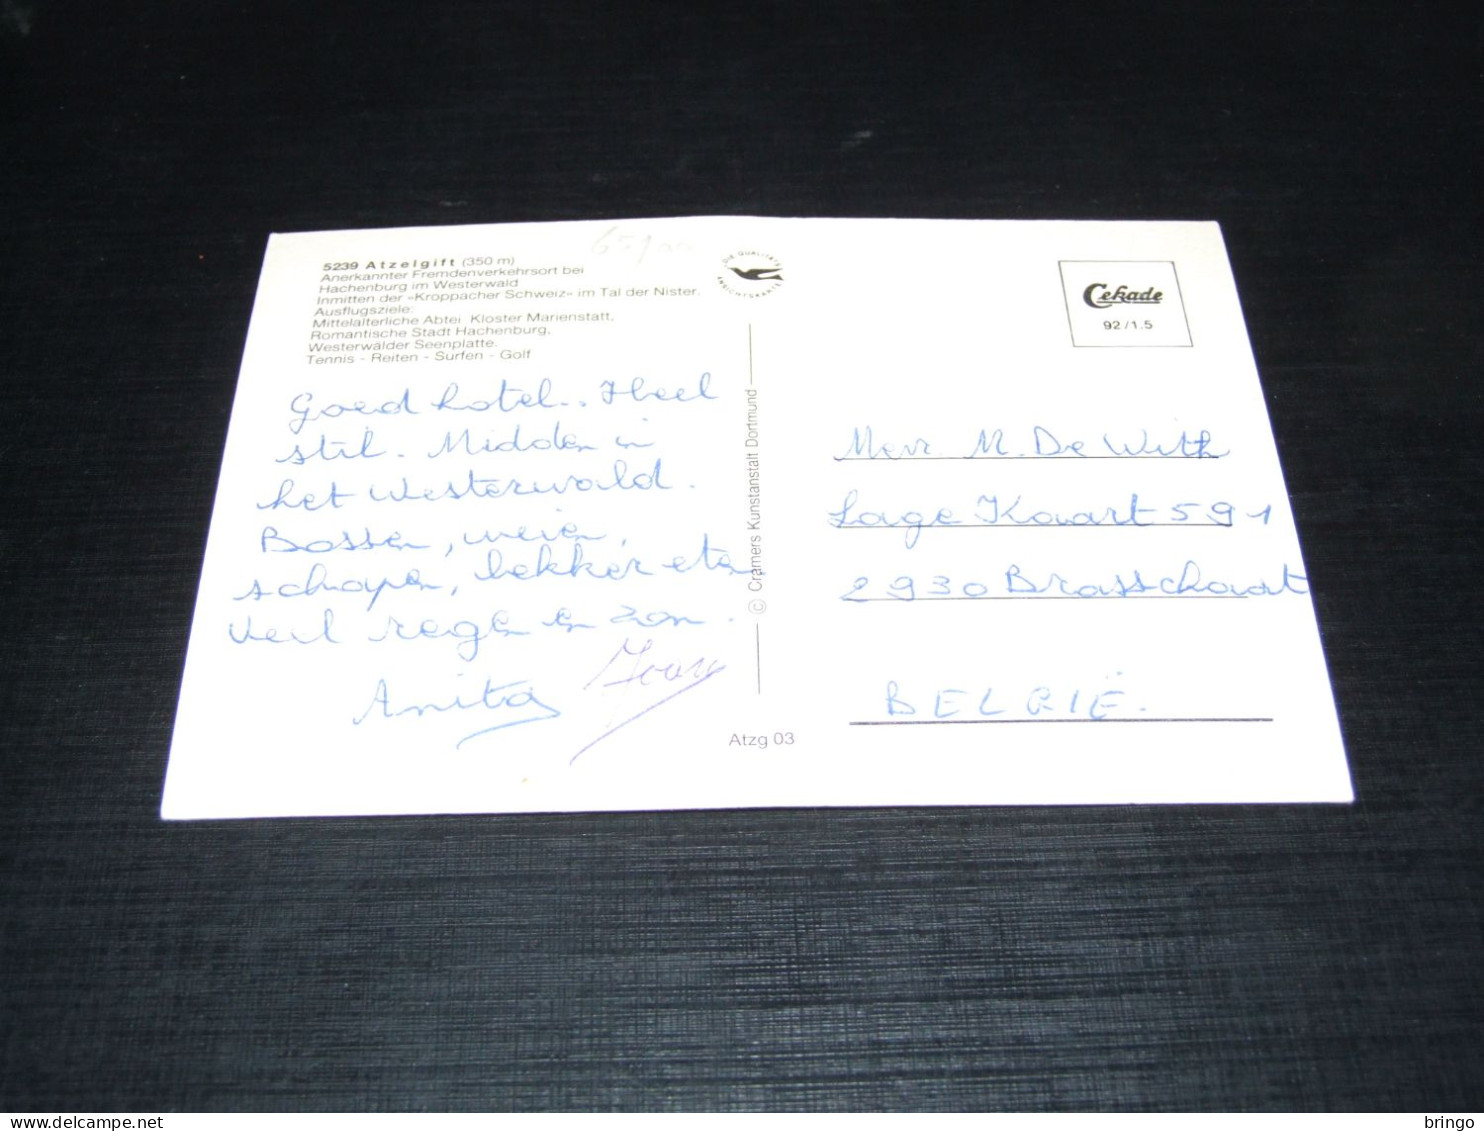 5239 Atzelgift (350 m)
Anerkannter Fremdenverkehrsort bei
Hachenburg im Westerwald
Inmitten der »Kroppacher Schweiz« im Tal der Nister.
Ausflugsziele:
Mittelalterliche Abtei Kloster Marienstatt,
Romantische Stadt Hachenburg,
Westerwälder Seenplatte.
Tennis - Reiten - Surfen - Golf
Goed hotel.. Heel
stil. Midden in
het Westerwald.
Bossen, weien,
schapen, lekker eten,
veel regen en zon.
Anita
DIE QUALITÄTS
ANSICHTSKARTE
© Cramers Kunstanstalt Dortmund
Atzg 03
Cekade
92/1.5
Mevr. M. De With
Lage Kaart 591
2930 Brasschaat
BELGIË.
delcampe.net
bringo